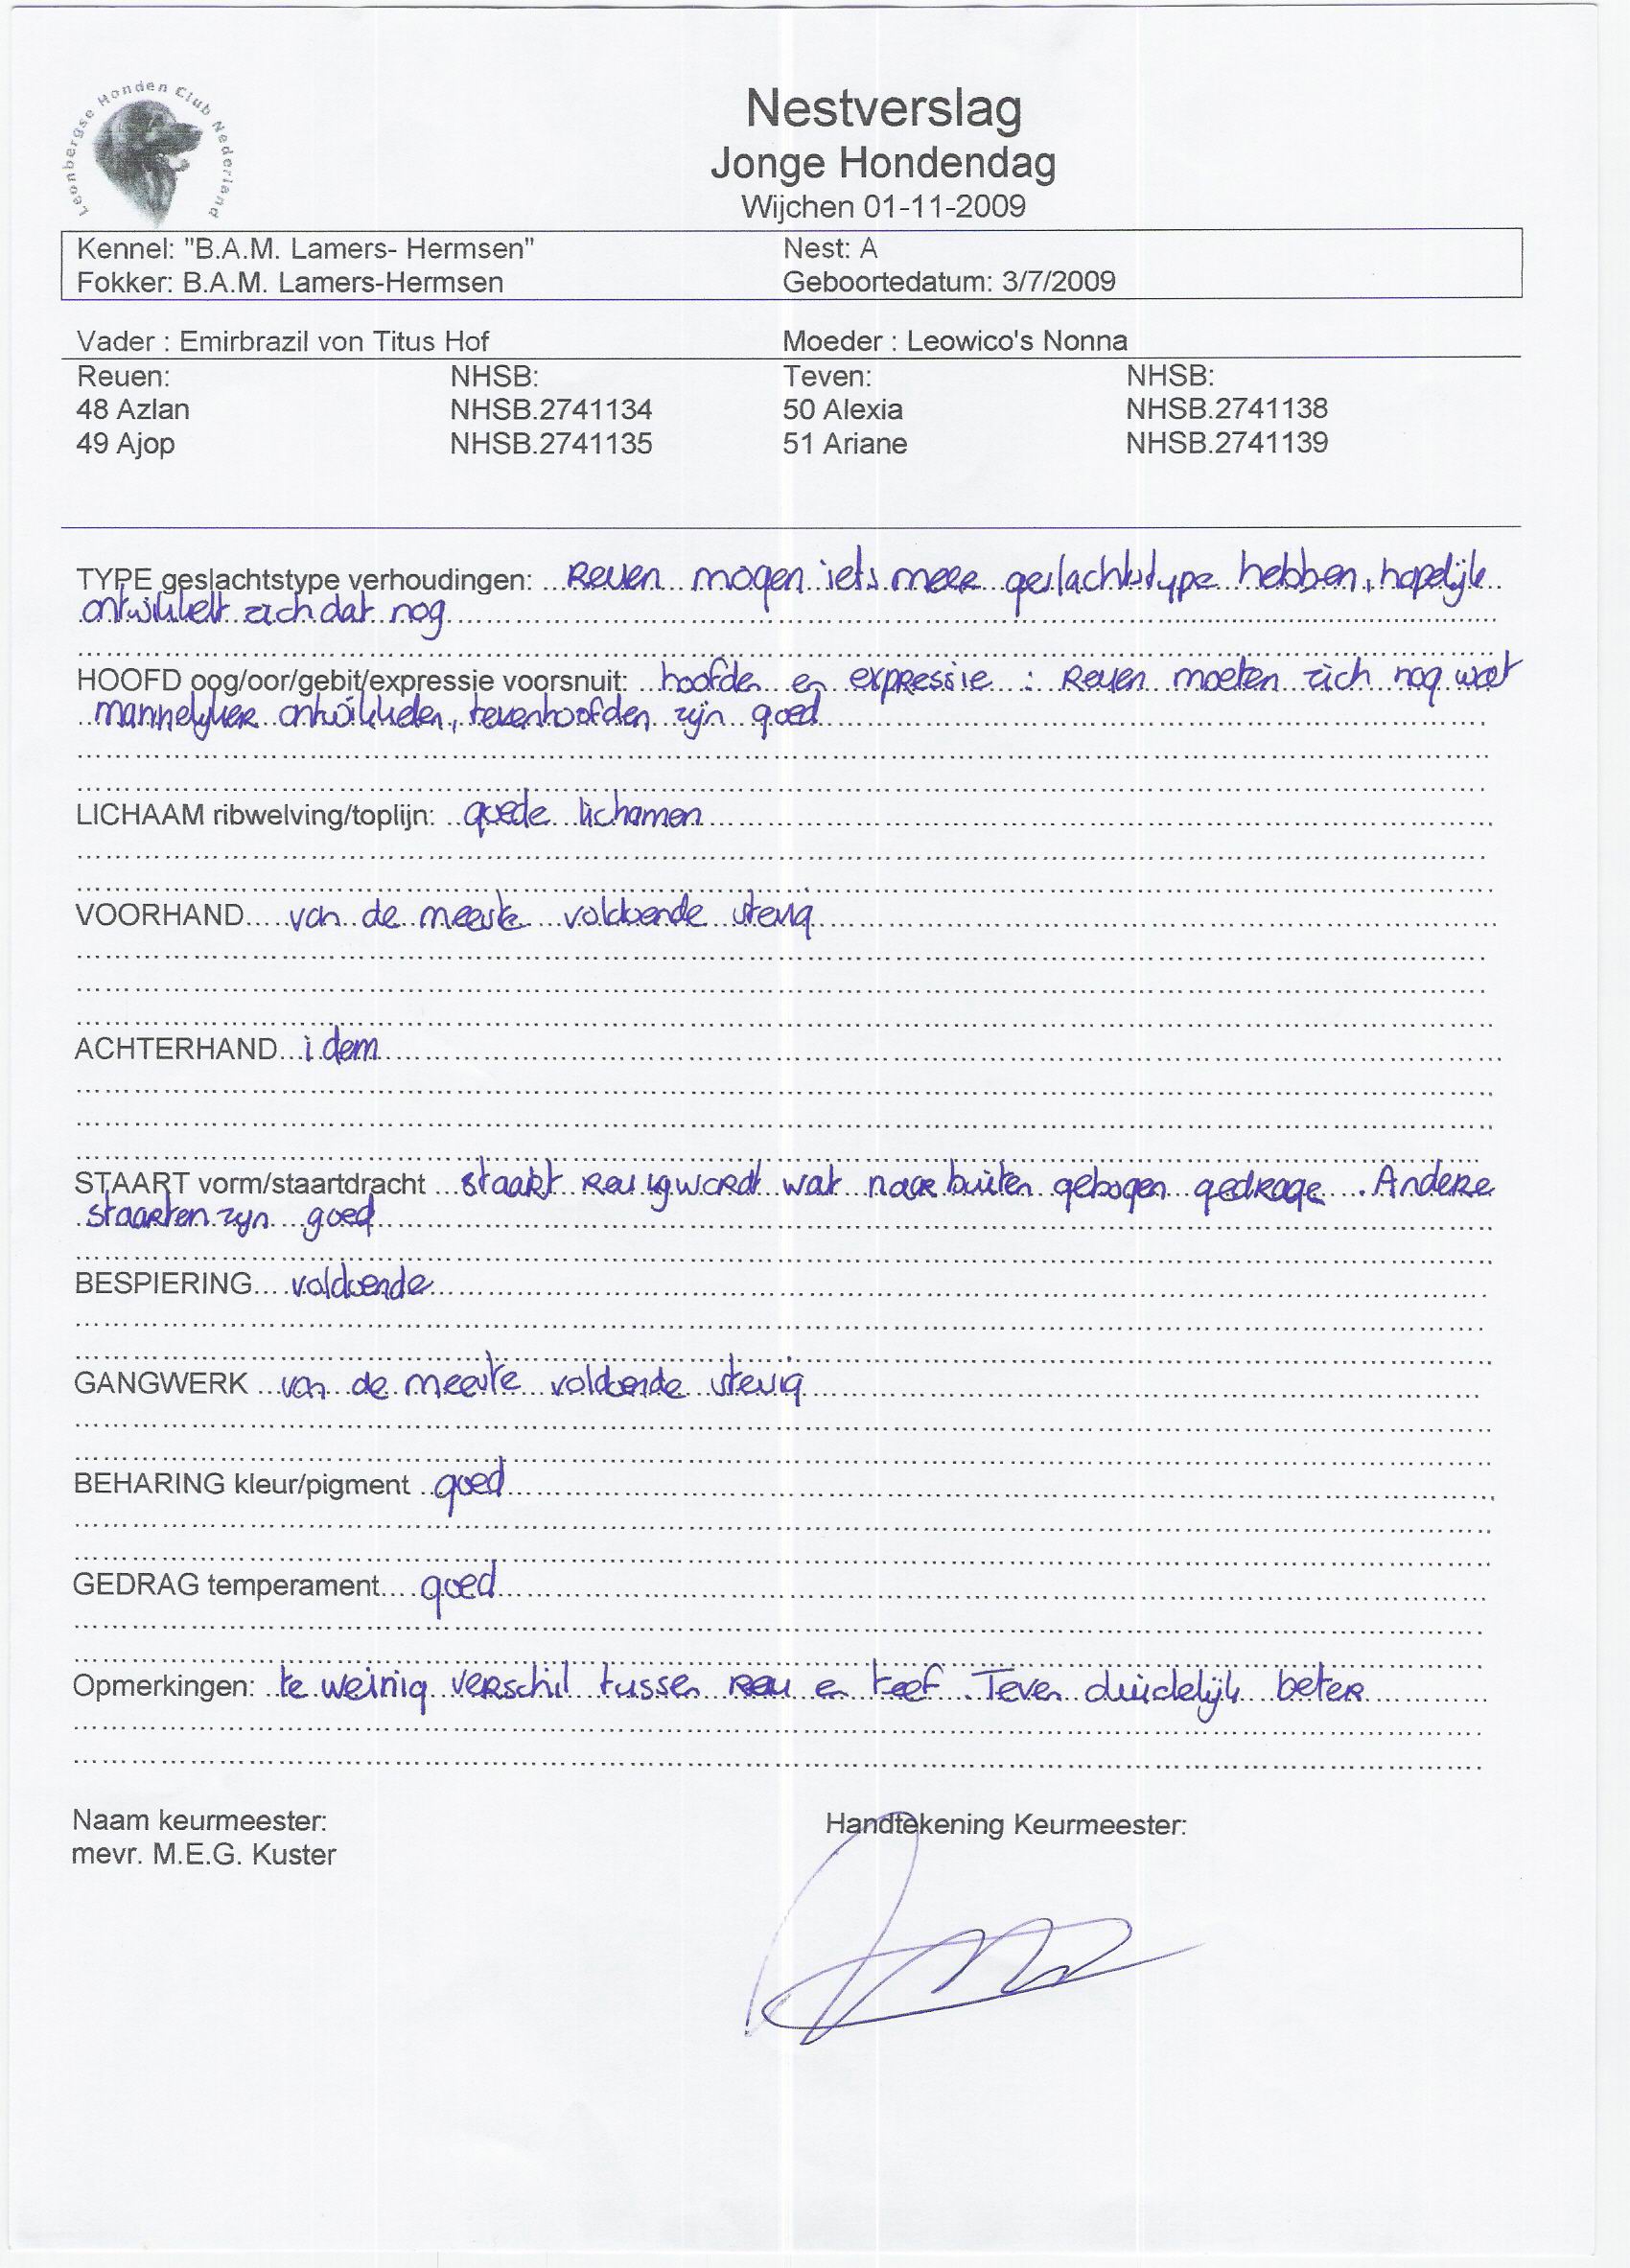 Leonbergse Honden Club Nederland
Nestverslag
Jonge Hondendag
Wijchen 01-11-2009
Kennel: "B.A.M. Lamers- Hermsen" Nest: A
Fokker: B.A.M. Lamers-Hermsen Geboortedatum: 3/7/2009
Vader : Emirbrazil von Titus Hof Moeder : Leowico's Nonna
Reuen: NHSB: Teven: NHSB:
48 Azlan NHSB.2741134 50 Alexia NHSB.2741138
49 Ajop NHSB.2741135 51 Ariane NHSB.2741139
TYPE geslachtstype verhoudingen: Reuen mogen iets meer geslachtstype hebben, hopelijk
ontwikkelt zich dat nog
HOOFD oog/oor/gebit/expressie voorsnuit: hoofden en expressie : Reuen moeten zich nog wat
mannelyker ontwikkelen, tevenhoofden zijn goed
LICHAAM ribwelving/toplijn: goede lichamen
VOORHAND van de meeste voldoende stevig
ACHTERHAND idem
STAART vorm/staartdracht staart Reu wordt wat naar buiten gebogen gedrage. Andere
staarten zyn goed
BESPIERING voldoende
GANGWERK van de meeste voldoende stevig
BEHARING kleur/pigment goed
GEDRAG temperament goed
Opmerkingen: te weinig verschil tussen reu en teef. Teven duidelijk beter
Naam keurmeester: Handtekening Keurmeester:
mevr. M.E.G. Kuster